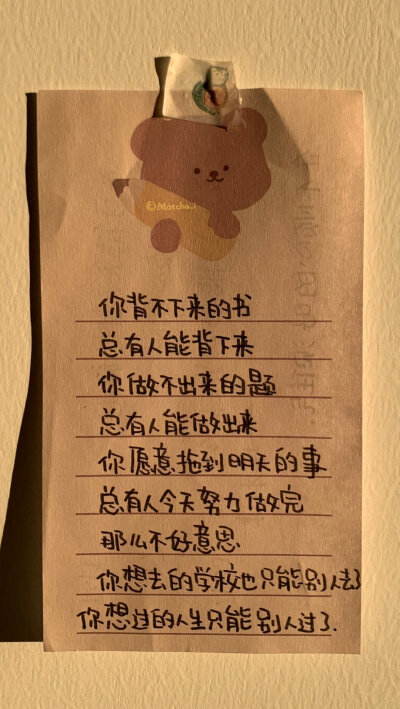 ©Matcha_i
你背不下来的书
总有人能背下来
你做不出来的题
总有人能做出来
你愿意拖到明天的事
总有人今天努力做完
那么不好意思
你想去的学校也只能别人去了
你想过的人生只能别人过了.